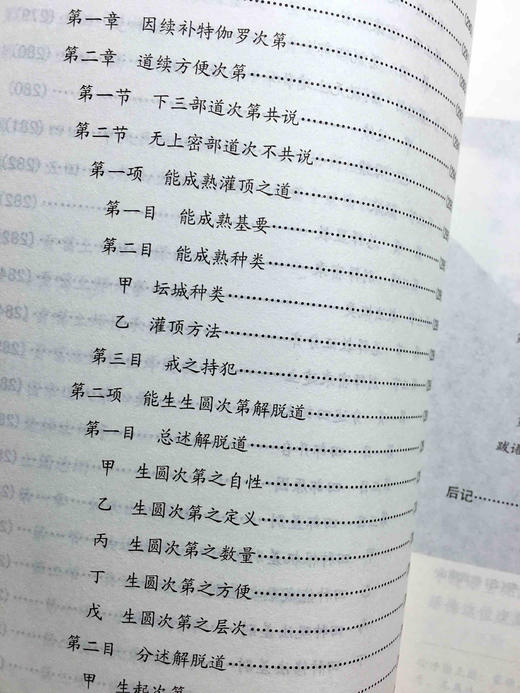 第一章 因续补特伽罗次第
第二章 道续方便次第
第一节 下三部道次第共说
第二节 无上密部道次不共说
第一项 能成熟灌顶之道
第一目 能成熟基要
第二目 能成熟种类
甲 坛城种类
乙 灌顶方法
第三目 戒之持犯
第二项 能生生圆次第解脱道
第一目 总述解脱道
甲 生圆次第之自性
乙 生圆次第之定义
丙 生圆次第之数量
丁 生圆次第之方便
戊 生圆次第之层次
第二目 分述解脱道
甲 生起次第
跋语
后记